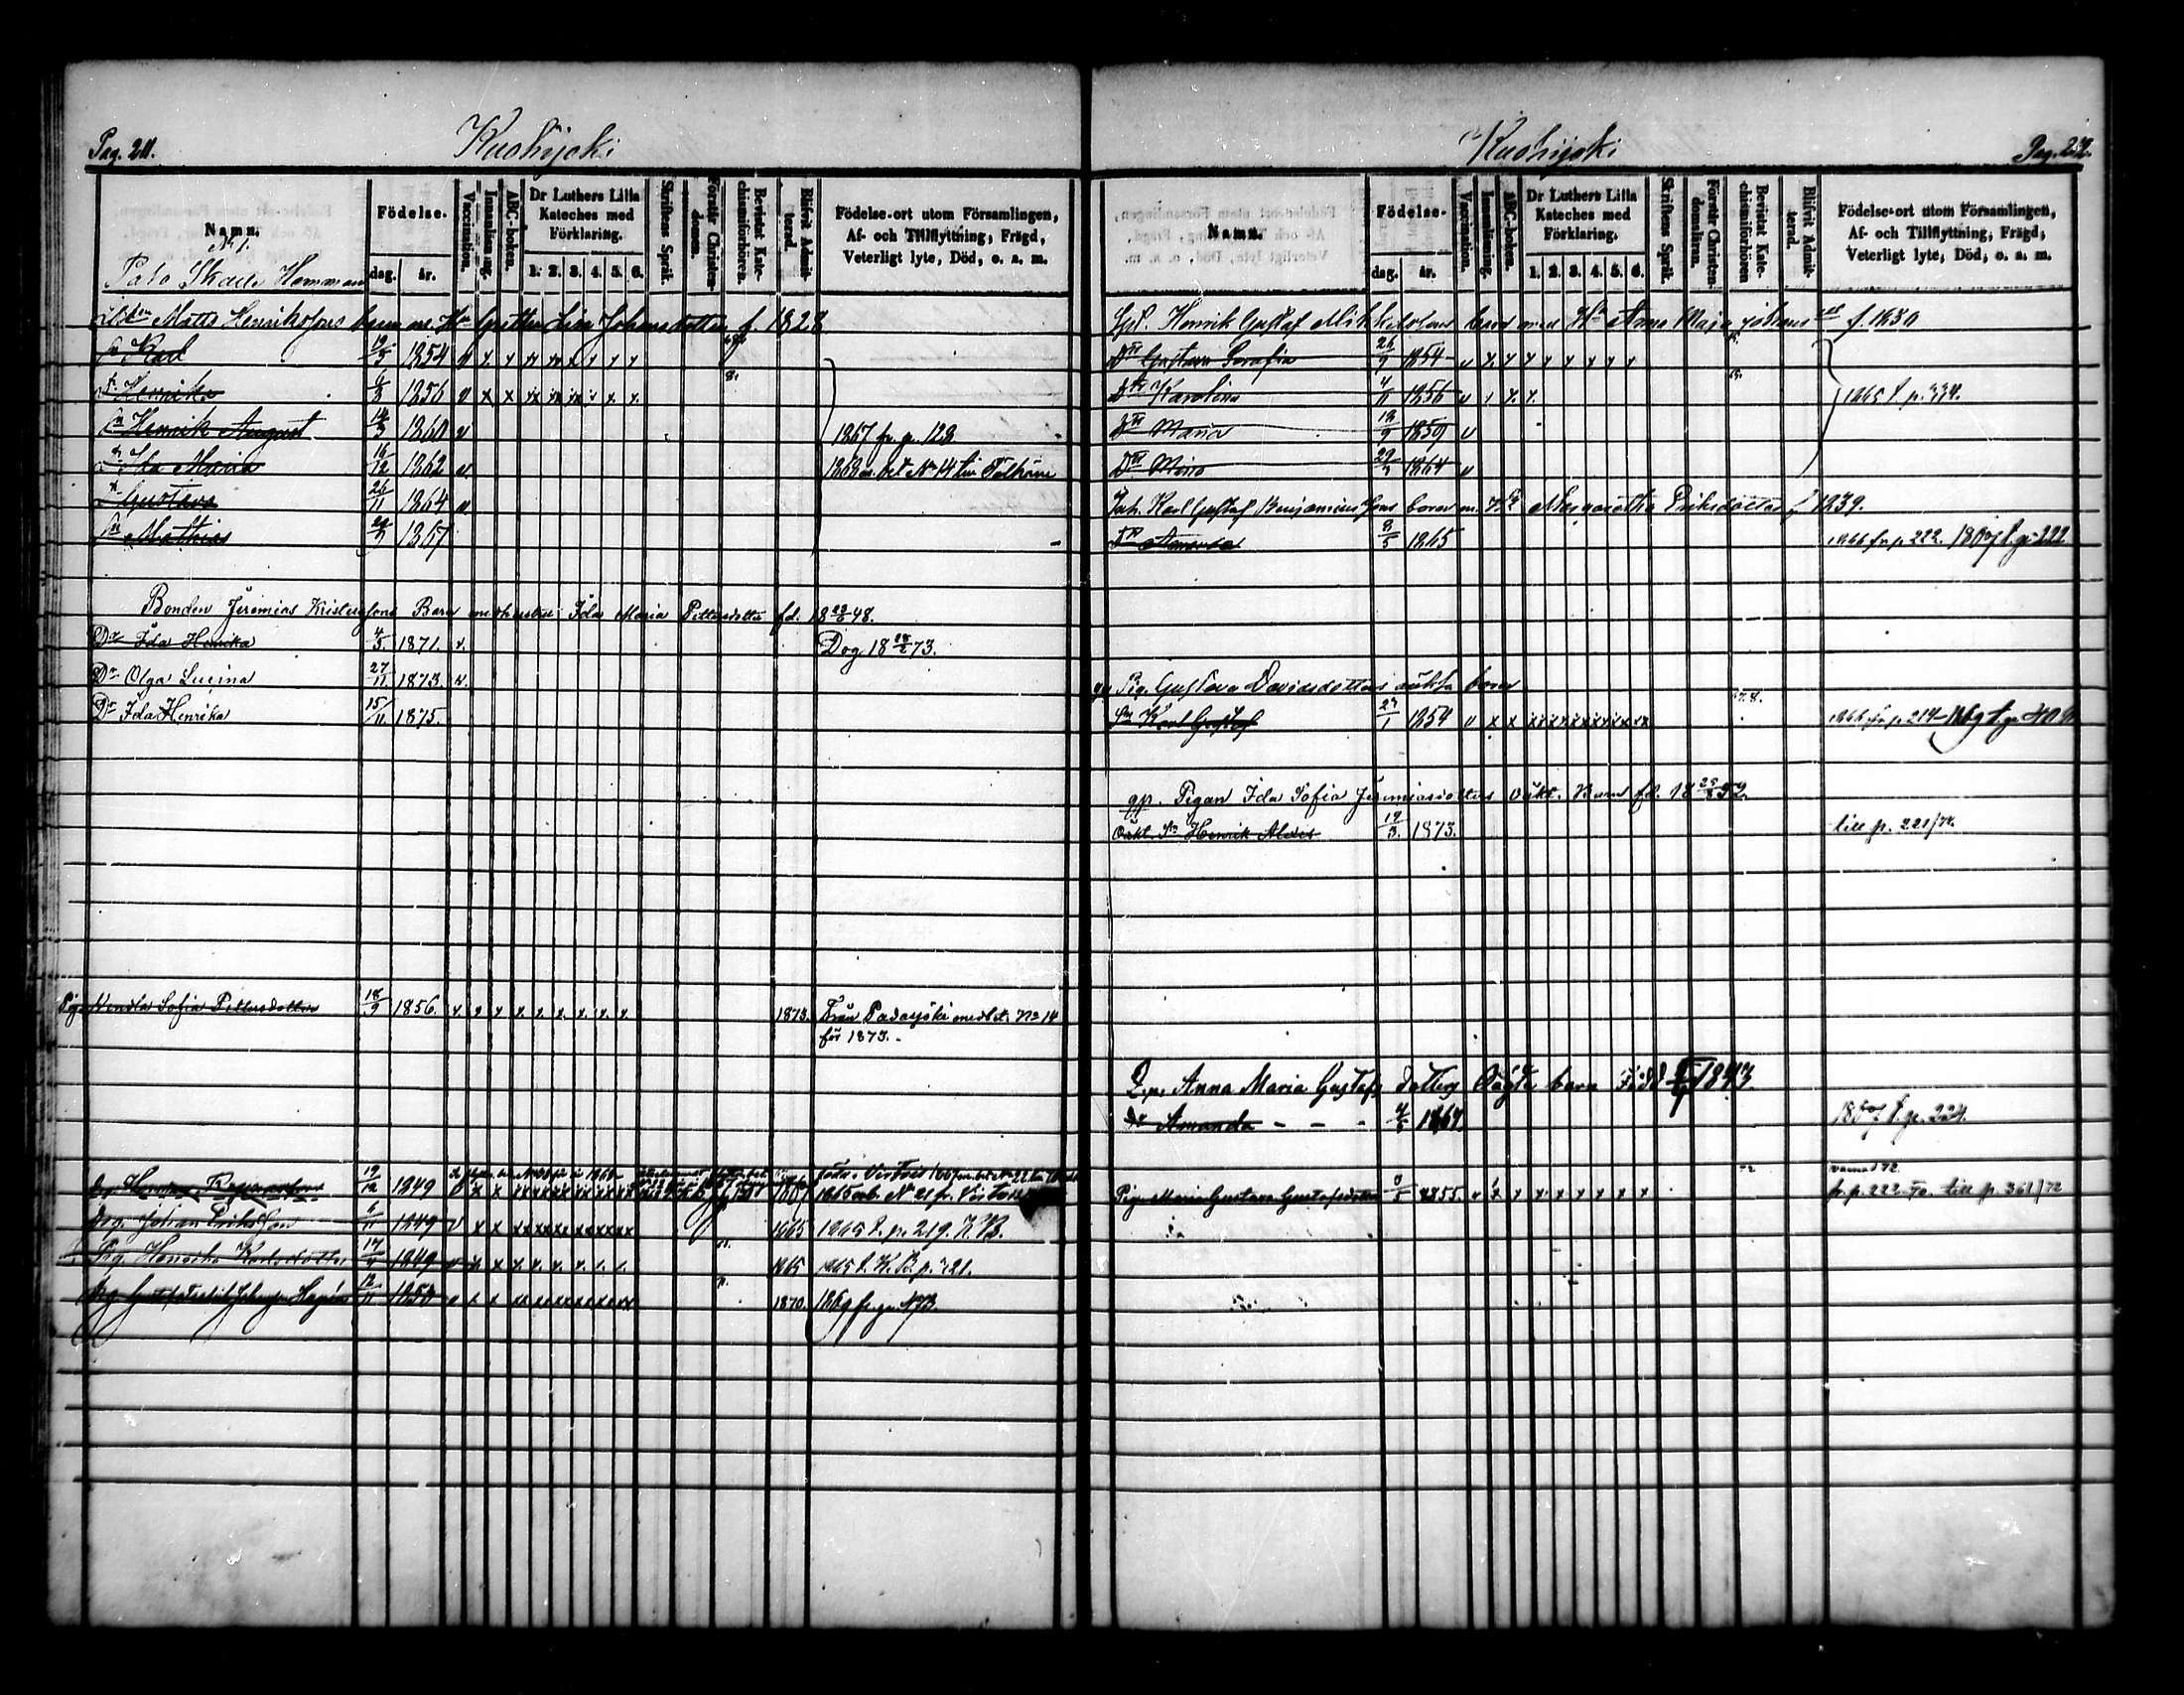 Pag. 211.
Kuohijoki
Namn.
N:o 1.
Pato Skatte Hemman
Födelse.
dag.
år.
Vaccination.
Innanläsning.
ABC-boken.
Dr Luthers Lilla Kateches med Förklaring.
1. 2. 3. 4. 5. 6.
Skriftens Språk.
Förstår Christendomen.
Bevistat Katechismiförhören.
Blifvit Admitterad.
Födelse-ort utom Församlingen, Af- och Tillflyttning, Frägd, Veterligt lyte, Död, o. s. m.
Matts Henriksons barn med Hu Greta Lisa Johansdotter f. 1828
Sn Karl 1854 v x x
Henrika 6/3 1856 v x x
Sn Henrik August 14/3 1860 v 1867 fr. p. 128
Ida Maria 16/12 1862 v 1868 m. bet. No 14 fr.
Gustava 26/11 1864 v
Sn Mathias 1867
Bonden Jeremias Kristersons Barn med hustru Ida Maria Pettersdotter fd. 18 48.
Dr Ida Henrika 4/5 1871. v. Dog 18 73.
Dr Olga Lucina 27/11 1873. v.
Dr Ida Henrika 15/11 1875.
Pig. Vendla Sofia Pettersdotter 18/9 1856. v x x x x x x x x 1873. Från Padasjoki med bet. No 14
för 1873.
Dr. Henrik 19/12 1849
Drg. Johan Erikson 6/11 1849 v x x 1865 1865 t. p. 219. K. B.
Pig. Henrika Karlsdotter 17/4 1849 v x x x x x x x x 1865 1865 t. K. B. p. 221.
Drg. Gustaf 12/11 1853 v x x 1870. 1869 fr. p. 173.
Kuohijoki
Pag. 212.
Namn.
Födelse.
dag.
år.
Vaccination.
Innanläsning.
ABC-boken.
Dr Luthers Lilla Kateches med Förklaring.
1. 2. 3. 4. 5. 6.
Skriftens Språk.
Förstår Christendomsläran.
Bevistat Katechismiförhören
Blifvit Admitterad.
Födelse-ort utom Församlingen, Af- och Tillflyttning, Frägd, Veterligt lyte, Död, o. s. m.
Henrik Gustaf Mikkelsons barn med Hu Anna Maja Johansdr f. 1830
Dr Gustava Serafia 26/9 1854 v x x x x x x x x
Dtr Karolina 4/11 1856 v x x x 1865 t. p. 334.
Dtr Maria 1859 v
Dtr Mina 1864 v
Inh. Karl Gustaf Benjaminsons barn m. Hu Margaretha Eriksdotter f. 1839.
Dtr Amanda 8/5 1865 1866 fr. p. 222. 1867 t. p. 222
gp Pig. Gustava Davidsdotters oäkta barn
Sn Karl Gustaf 27/1 1854 v x x 1866 fr. p. 214 1869 t. p.
gp. Pigan Ida Sofia Jeremiasdotters oäkt. Barn fd. 18 52.
Oäkt. Sn Henrik Alexis 19/3. 1873. till p. 221/74.
Q.p. Anna Maria Gustafs dotters Oägta barn Född 1843
Dr Amanda - - - 1867. 1867 t. p. 224.
vaccad 72.
Pig. Maria Gustava Gustafsdotter 1855. v x x x x x x x x fr. p. 222-70. till p. 361/72